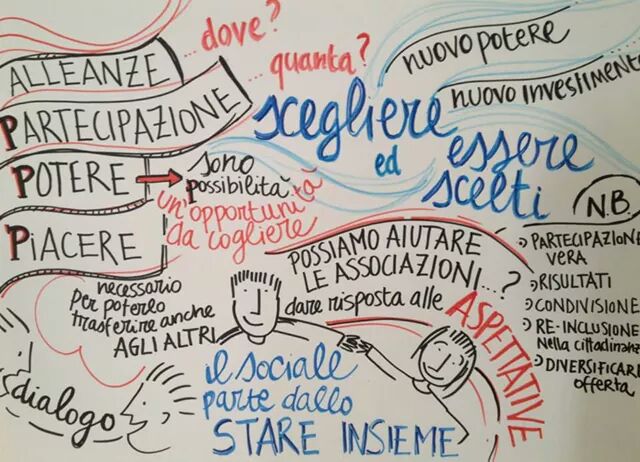 ALLEANZE
...dove?
PARTECIPAZIONE
... quanta?
POTERE
sono
possibilità
un'opportunità
da cogliere
PIACERE
necessario
per poterlo
trasferire anche
AGLI ALTRI
dialogo
nuovo potere
nuovo investimento
scegliere
ed
essere
scelti
POSSIAMO AIUTARE
LE ASSOCIAZIONI...?
dare risposta alle
ASPETTATIVE
il sociale
parte dallo
STARE INSIEME
N.B.
PARTECIPAZIONE
VERA
RISULTATI
CONDIVISIONE
RE-INCLUSIONE
Nella cittadinanza
DIVERSIFICARE
offerta